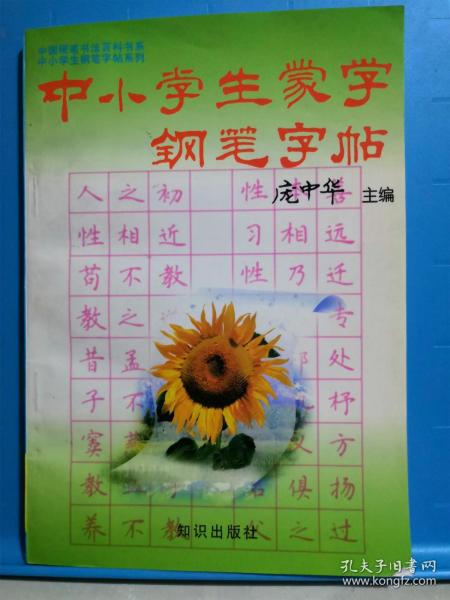 中国硬笔书法百科书系
中小学生钢笔字帖系列
中小学生蒙学
钢笔字帖
庞中华 主编
人之初 性 善
性相近 习相远
苟不教 性乃迁
教之 专
昔孟 处
子不 杼
窦 义方
教 名俱扬
养不教 父之过
知识出版社
孔夫子旧书网
www.kongfz.com